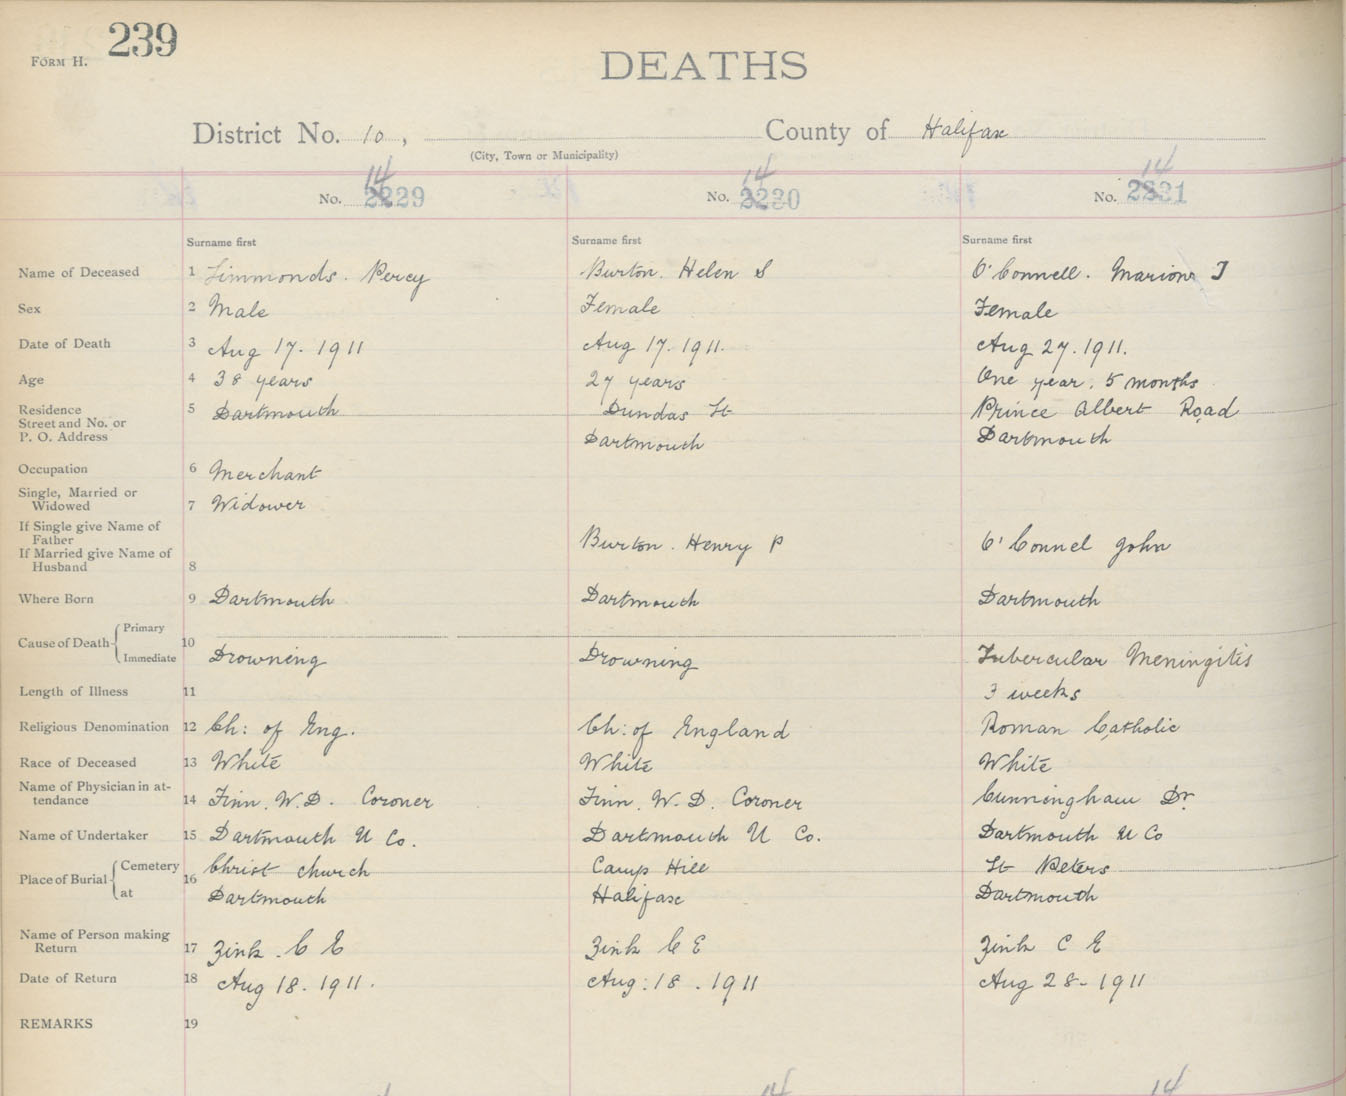 239
FORM H.
DEATHS
District No. 10, County of Halifax
(City, Town or Municipality)
14 14 14
No. 2229 No. 2230 No. 2231
Surname first Surname first Surname first
Name of Deceased 1 Simmonds. Percy Burton. Helen S O'Connell. Marion J
Sex 2 Male Female Female
Date of Death 3 Aug 17. 1911 Aug 17. 1911. Aug 27. 1911.
Age 4 38 years 27 years One year. 5 months
Residence 5 Dartmouth Dundas St Prince Albert Road
Street and No. or
P. O. Address Dartmouth Dartmouth
Occupation 6 Merchant
Single, Married or
Widowed 7 Widower
If Single give Name of
Father Burton. Henry P O'Connel John
If Married give Name of
Husband 8
Where Born 9 Dartmouth Dartmouth Dartmouth
Cause of Death Primary 10
Immediate Drowning Drowning Tubercular Meningitis
Length of Illness 11 3 weeks
Religious Denomination 12 Ch: of Eng. Ch: of England Roman Catholic
Race of Deceased 13 White White White
Name of Physician in at-
tendance 14 Finn. W. D. Coroner Finn. W. D. Coroner Cunningham Dr.
Name of Undertaker 15 Dartmouth U Co. Dartmouth U Co. Dartmouth U Co
Place of Burial Cemetery 16 Christ church Camp Hill St Peters
at Dartmouth Halifax Dartmouth
Name of Person making
Return 17 Zink. C E Zink C E Zink C E
Date of Return 18 Aug 18. 1911. Aug: 18. 1911 Aug 28- 1911
REMARKS 19
14 14